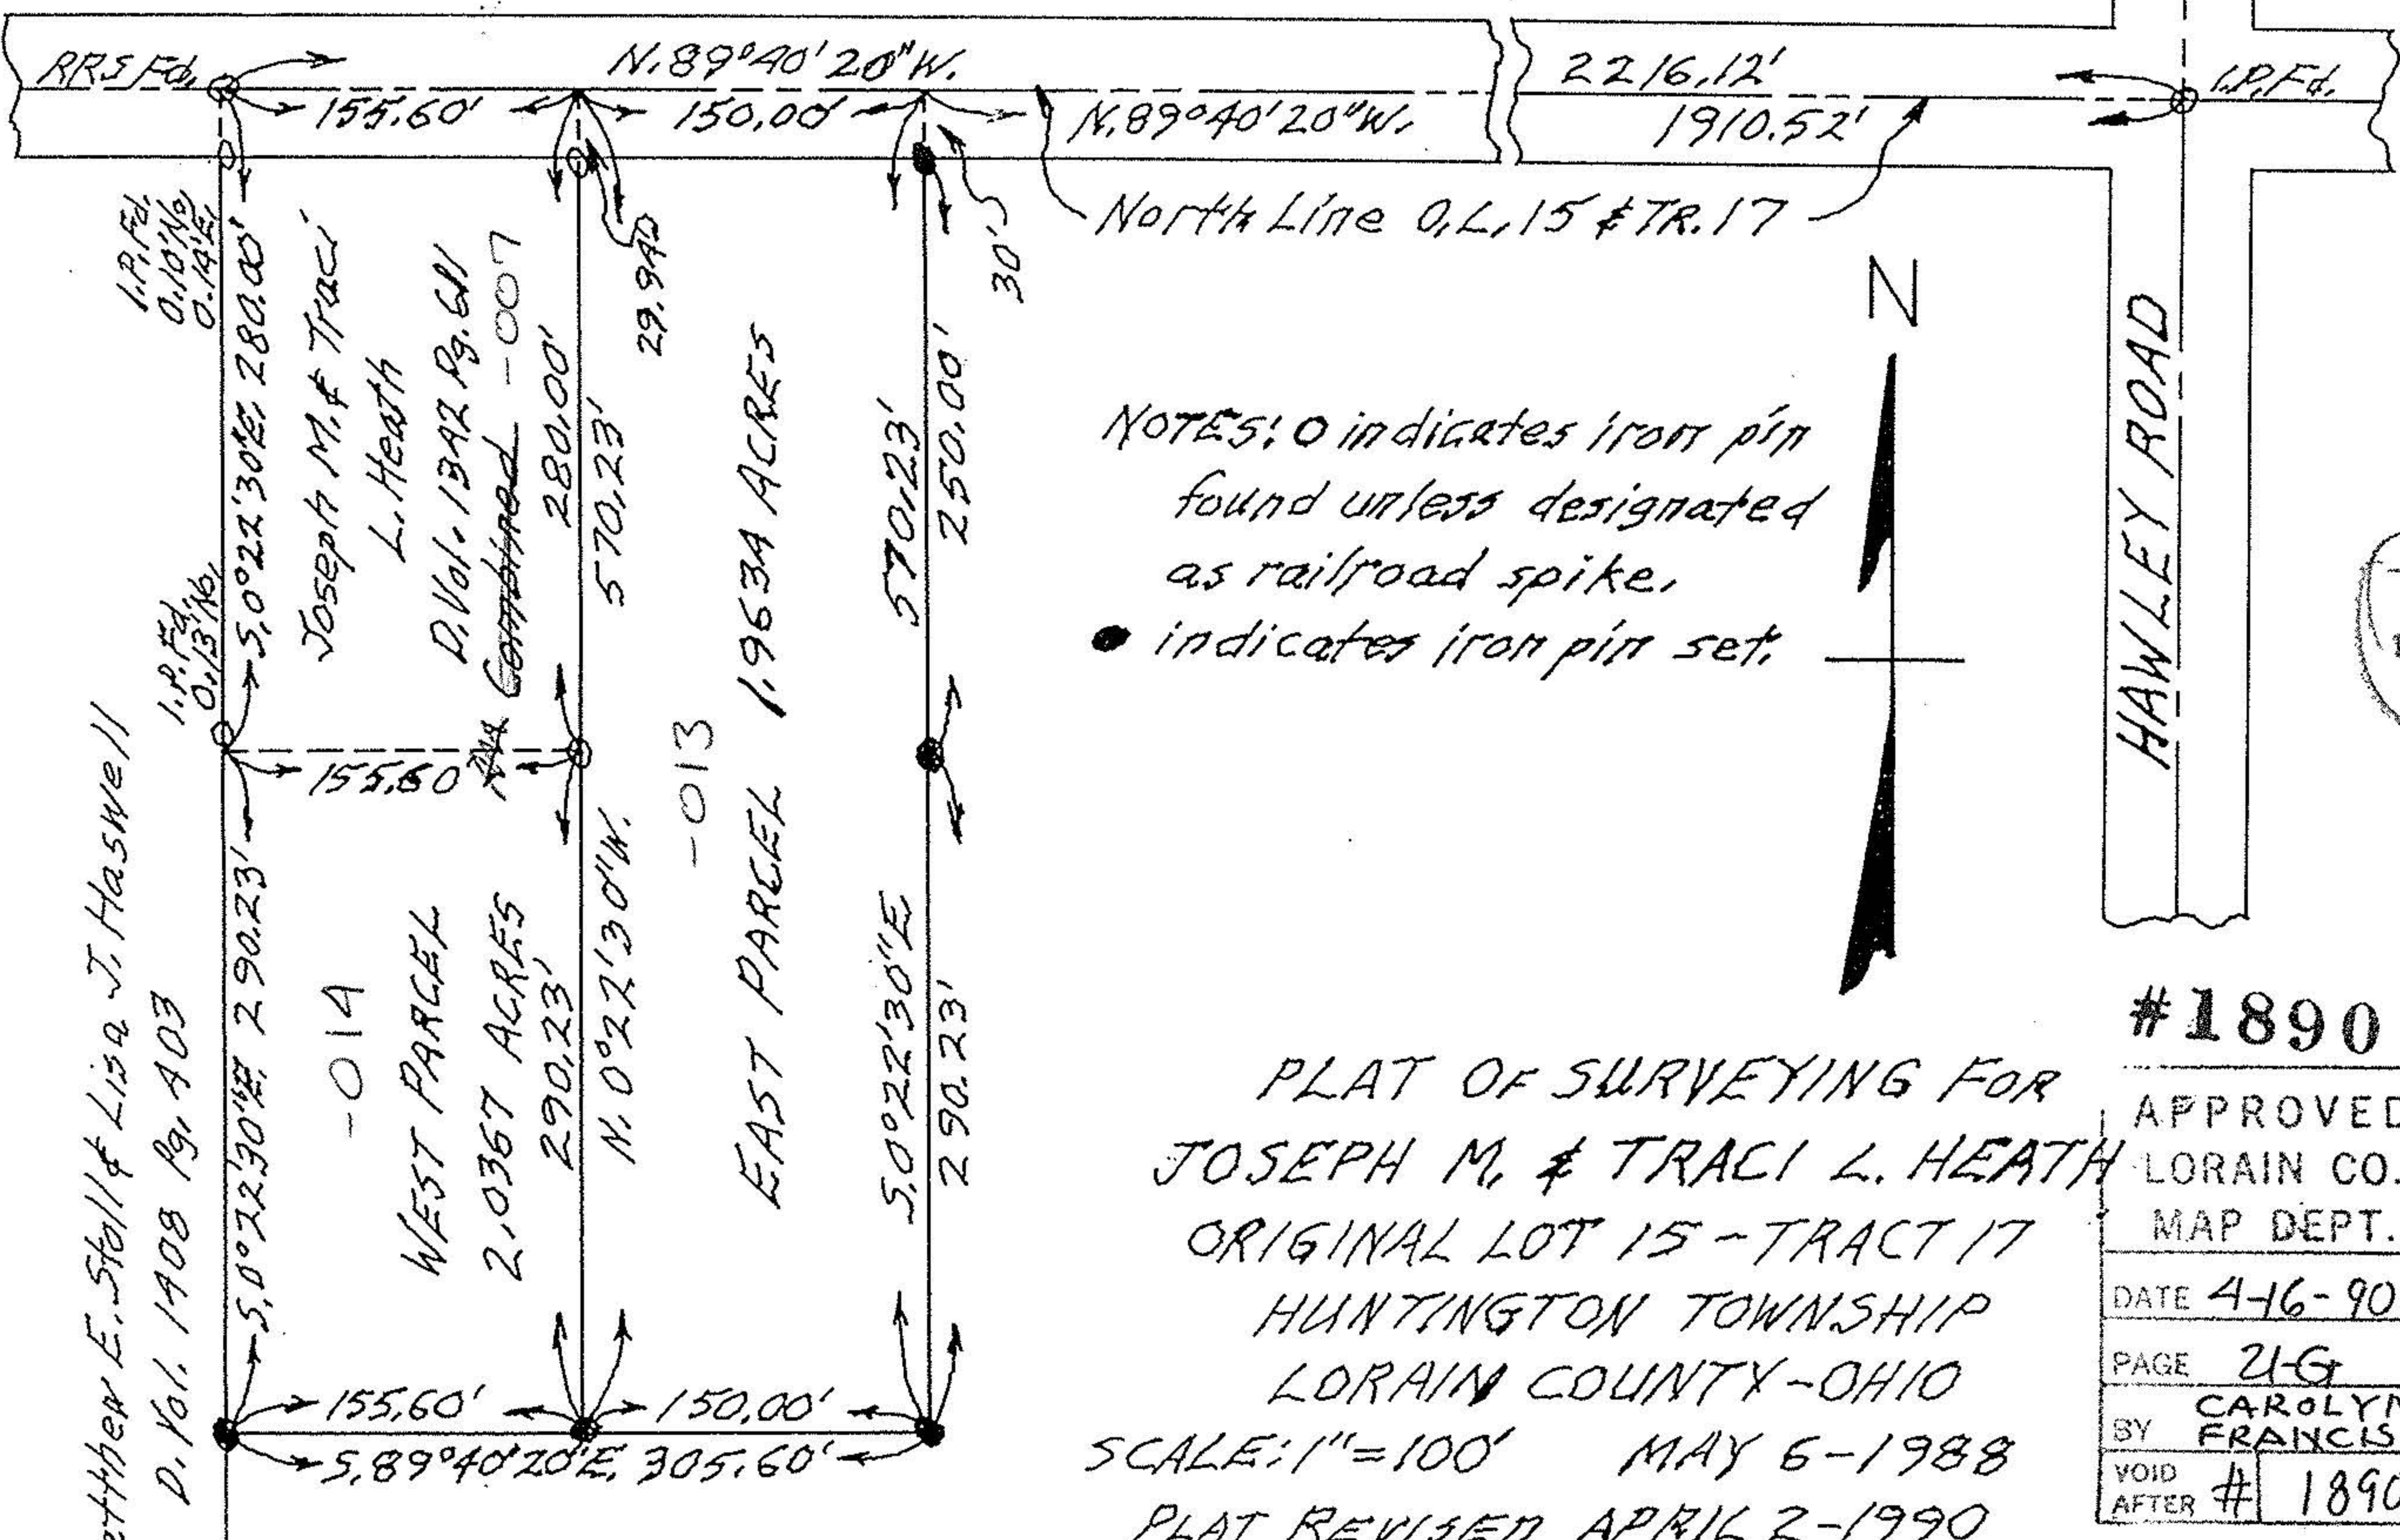 RRS Fd.
N.89°40'20"W.
2216.12'
I.P.Fd.
155.60'
150.00'
N.89°40'20"W.
1910.52'
North Line O.L.15 & TR.17
I.P.Fd.
0.10'No.
0.14'E.
S.0°22'30"E. 280.00'
Joseph M. & Traci
L. Heath
D.Vol. 1342 Pg. 611
Combined -007
280.00'
570.23'
29.94'
30'
570.23'
250.00'
N
HAWLEY ROAD
NOTES: O indicates iron pin
found unless designated
as railroad spike.
● indicates iron pin set.
I.P.Fd.
0.13'No.
155.60'
-013
EAST PARCEL 1.9634 ACRES
E. Stoll & Lisa J. Haswell
D. Vol. 1408 Pg. 403
S.0°22'30"E. 290.23'
-014
WEST PARCEL
2.0367 ACRES
290.23'
N.0°22'30"W.
S.0°22'30"E.
290.23'
155.60'
150.00'
S.89°40'20"E. 305.60'
PLAT OF SURVEYING FOR
JOSEPH M. & TRACI L. HEATH
ORIGINAL LOT 15 - TRACT 17
HUNTINGTON TOWNSHIP
LORAIN COUNTY - OHIO
SCALE: 1"=100' MAY 6-1988
PLAT REVISED APRIL 2-1990
#1890
APPROVED
LORAIN CO.
MAP DEPT.
DATE 4-16-90
PAGE 21-G
BY CAROLYN
FRANCIS
VOID
AFTER # 1890